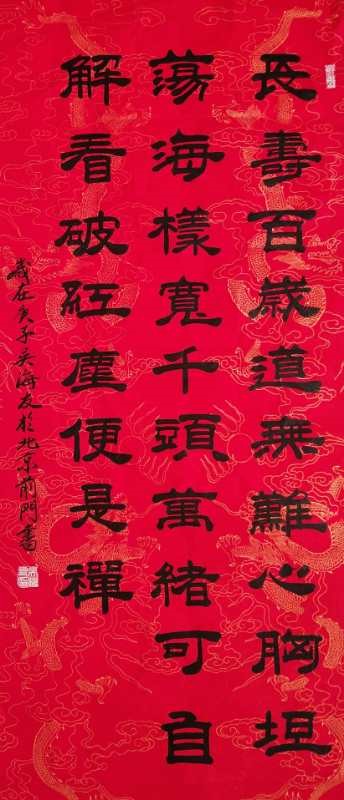 長壽百歲道無難心胸坦
蕩海樣寬千頭萬緒可自
解看破紅塵便是禪
歲在庚子吴海友於北京前門書